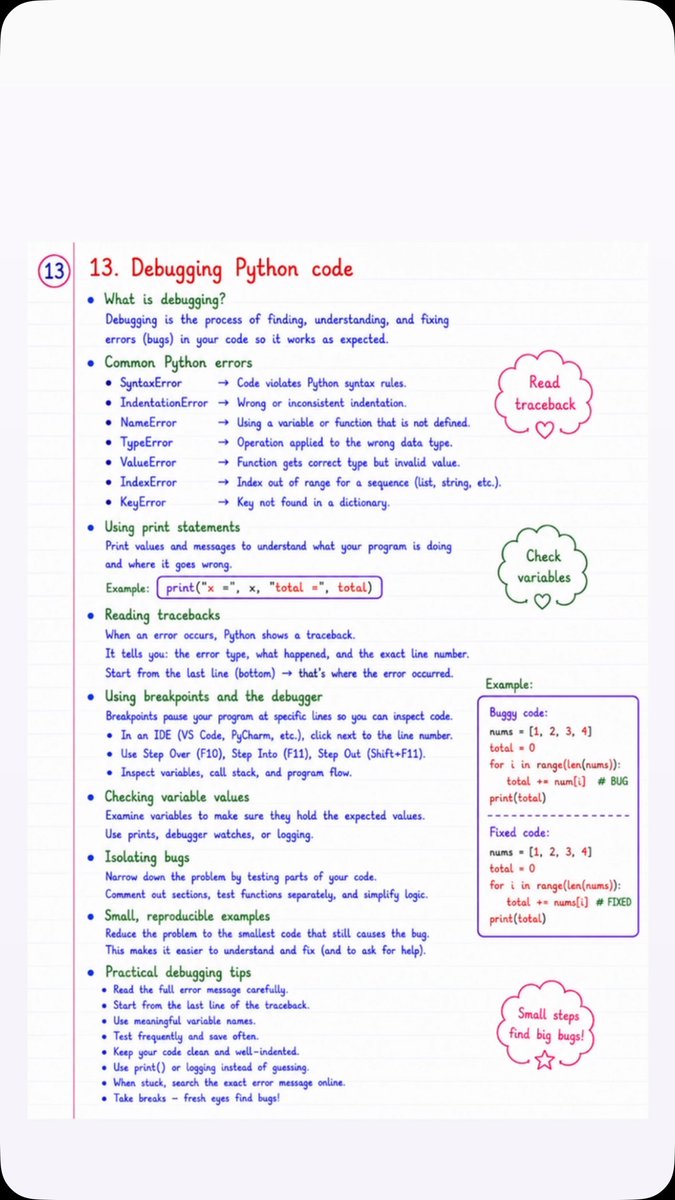 13
13. Debugging Python code
• What is debugging?
Debugging is the process of finding, understanding, and fixing
errors (bugs) in your code so it works as expected.
• Common Python errors
• SyntaxError → Code violates Python syntax rules.
• IndentationError → Wrong or inconsistent indentation.
• NameError → Using a variable or function that is not defined.
• TypeError → Operation applied to the wrong data type.
• ValueError → Function gets correct type but invalid value.
• IndexError → Index out of range for a sequence (list, string, etc.).
• KeyError → Key not found in a dictionary.
Read
traceback
• Using print statements
Print values and messages to understand what your program is doing
and where it goes wrong.
Example: print("x =", x, "total =", total)
Check
variables
• Reading tracebacks
When an error occurs, Python shows a traceback.
It tells you: the error type, what happened, and the exact line number.
Start from the last line (bottom) → that's where the error occurred.
• Using breakpoints and the debugger
Breakpoints pause your program at specific lines so you can inspect code.
• In an IDE (VS Code, PyCharm, etc.), click next to the line number.
• Use Step Over (F10), Step Into (F11), Step Out (Shift+F11).
• Inspect variables, call stack, and program flow.
• Checking variable values
Examine variables to make sure they hold the expected values.
Use prints, debugger watches, or logging.
• Isolating bugs
Narrow down the problem by testing parts of your code.
Comment out sections, test functions separately, and simplify logic.
• Small, reproducible examples
Reduce the problem to the smallest code that still causes the bug.
This makes it easier to understand and fix (and to ask for help).
Example:
Buggy code:
nums = [1, 2, 3, 4]
total = 0
for i in range(len(nums)):
total += num[i] # BUG
print(total)
Fixed code:
nums = [1, 2, 3, 4]
total = 0
for i in range(len(nums)):
total += nums[i] # FIXED
print(total)
• Practical debugging tips
• Read the full error message carefully.
• Start from the last line of the traceback.
• Use meaningful variable names.
• Test frequently and save often.
• Keep your code clean and well-indented.
• Use print() or logging instead of guessing.
• When stuck, search the exact error message online.
• Take breaks – fresh eyes find bugs!
Small steps
find big bugs!